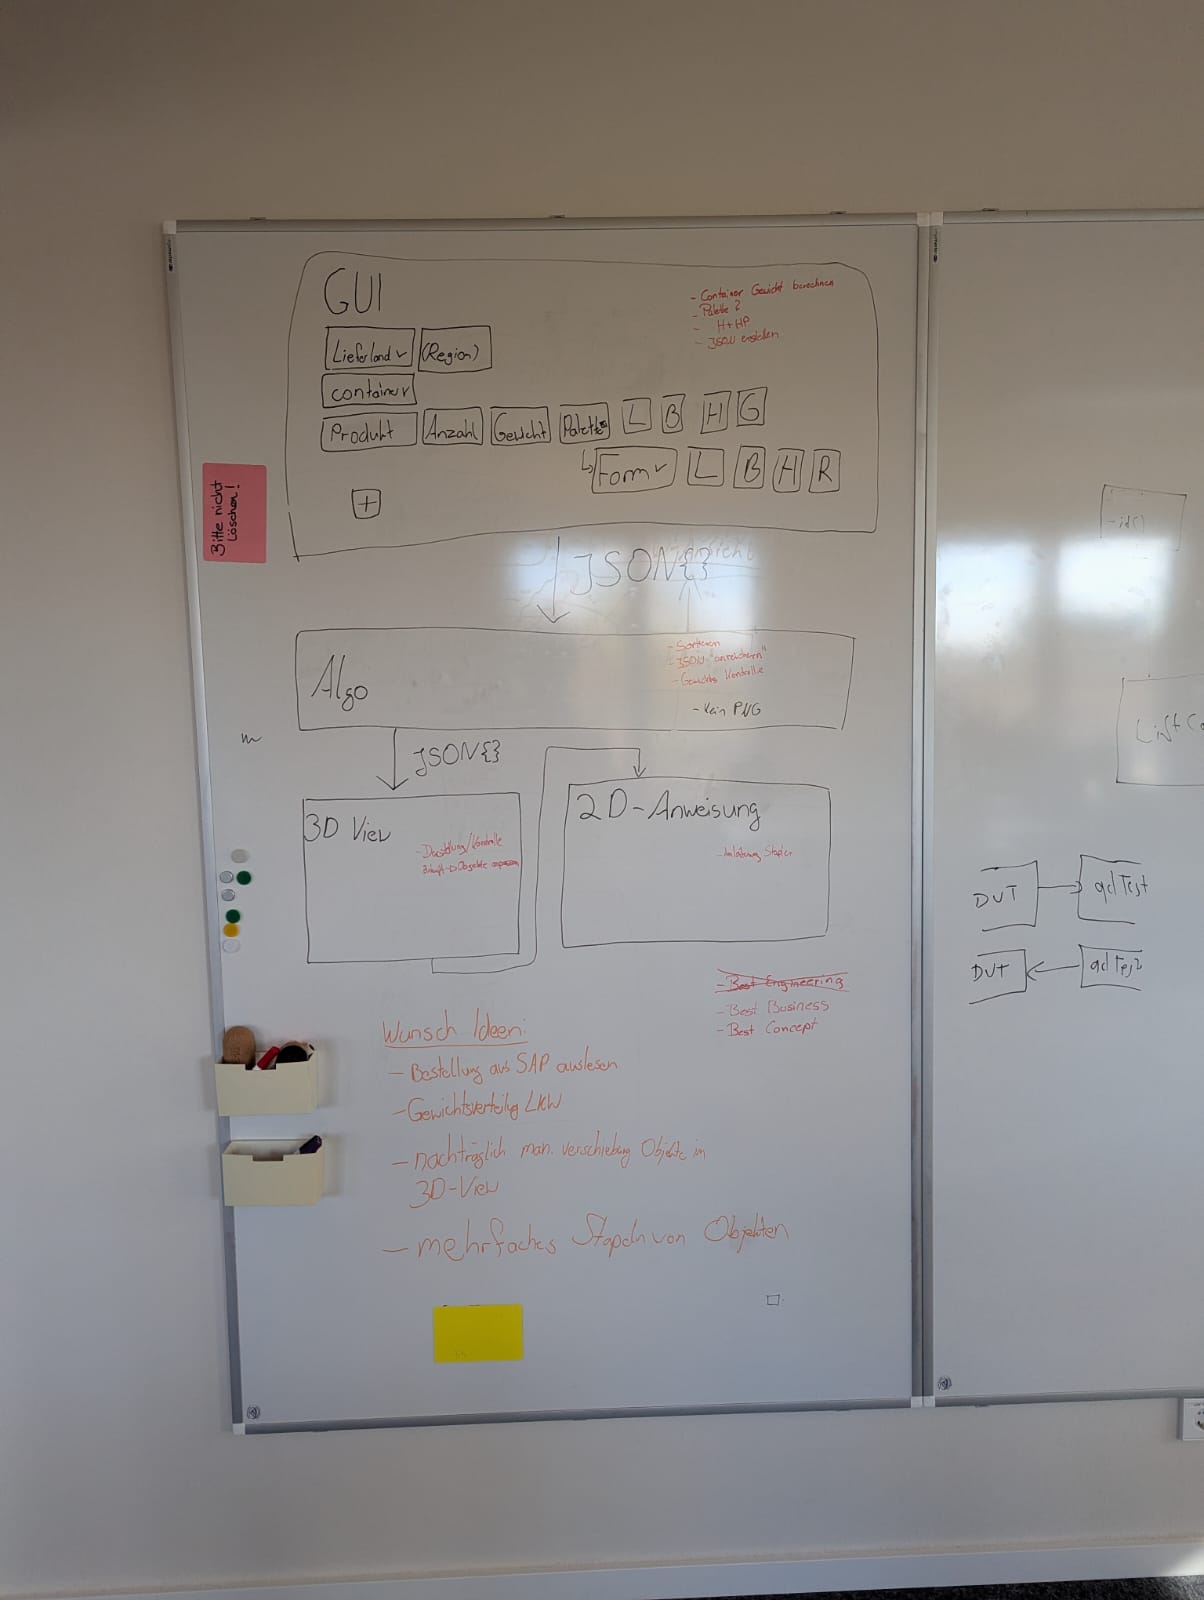 GUI
- Container Gewicht berechnen
- Palette ?
- H+HP
- JSON erstellen
Lieferland (Region)
container
Produkt Anzahl Gewicht Palette L B H G
Form L B H R
+
Bitte nicht
Löschen!
JSON{}
Algo
- Sortieren
- JSON "anreichern"
- Gewichts Kontrolle
- Kein PNG
JSON{}
3D View
- Darstellung/Kontrolle
Objekte
2D-Anweisung
- Best Engineering
- Best Business
- Best Concept
Wunsch Ideen:
- Bestellung aus SAP auslesen
- Gewichtsverteilung LKW
- nachträglich man. verschiebung Objekte im
3D-View
- mehrfaches Stapeln von Objekten
- id()
DUT
DUT